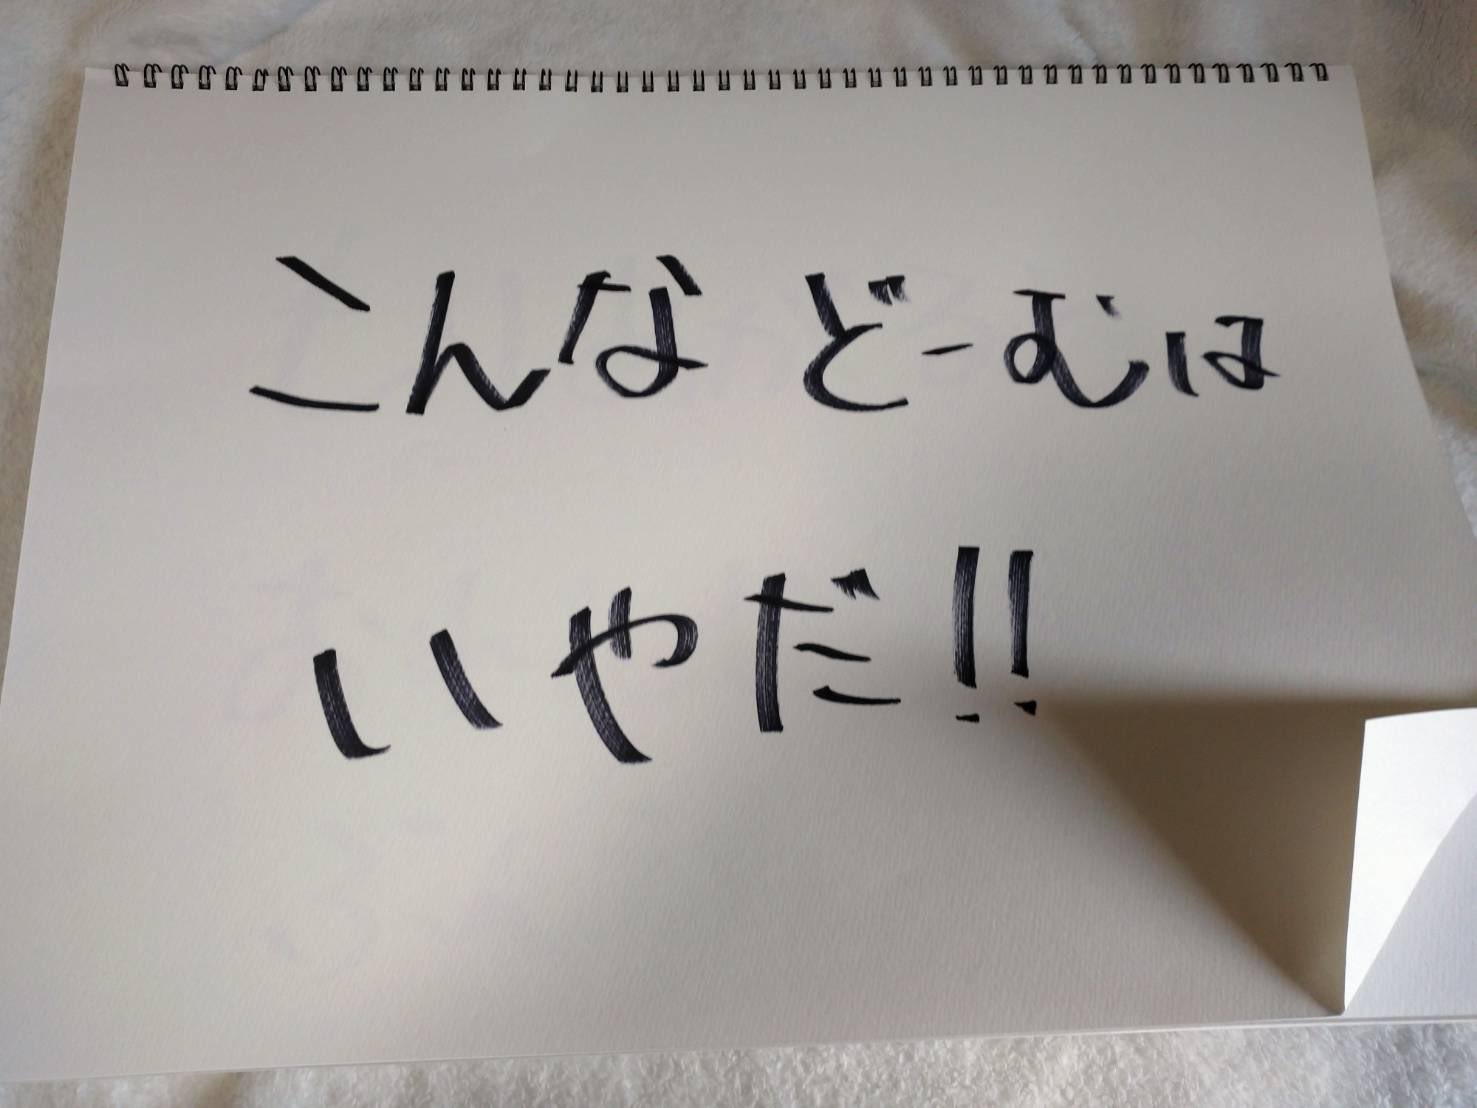 こんなどーむは
いやだ!!